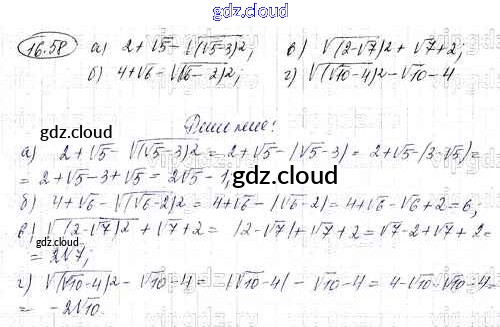 gdz.cloud
16.58 а) 2+√5-√(√5-3)²; в) √(2-√7)²+√7+2;
б) 4+√6-√(√6-2)²; г) √(√10-4)²-√10-4
gdz.cloud
Решение:
а) 2+√5-√(√5-3)² = 2+√5-|√5-3| = 2+√5-(3-√5) =
= 2+√5-3+√5 = 2√5-1;
gdz.cloud
б) 4+√6-√(√6-2)² = 4+√6-|√6-2| = 4+√6-√6+2=6;
gdz.cloud
в) √(2-√7)²+√7+2 = |2-√7|+√7+2 = √7-2+√7+2 =
= 2√7;
г) √(√10-4)²-√10-4 = |√10-4|-√10-4 = 4-√10-√10-4 =
= -2√10.
gdz.cloud